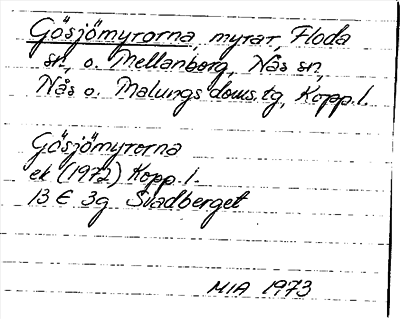 Gösjömyrorna, myrar, Floda
sn, o. Mellanborg, Nås sn,
Nås o. Malungs doms.tg, Kopp.l.
Gösjömyrorna
ek (1972) Kopp.l.
13 E 3g Svadberget
MIA 1973